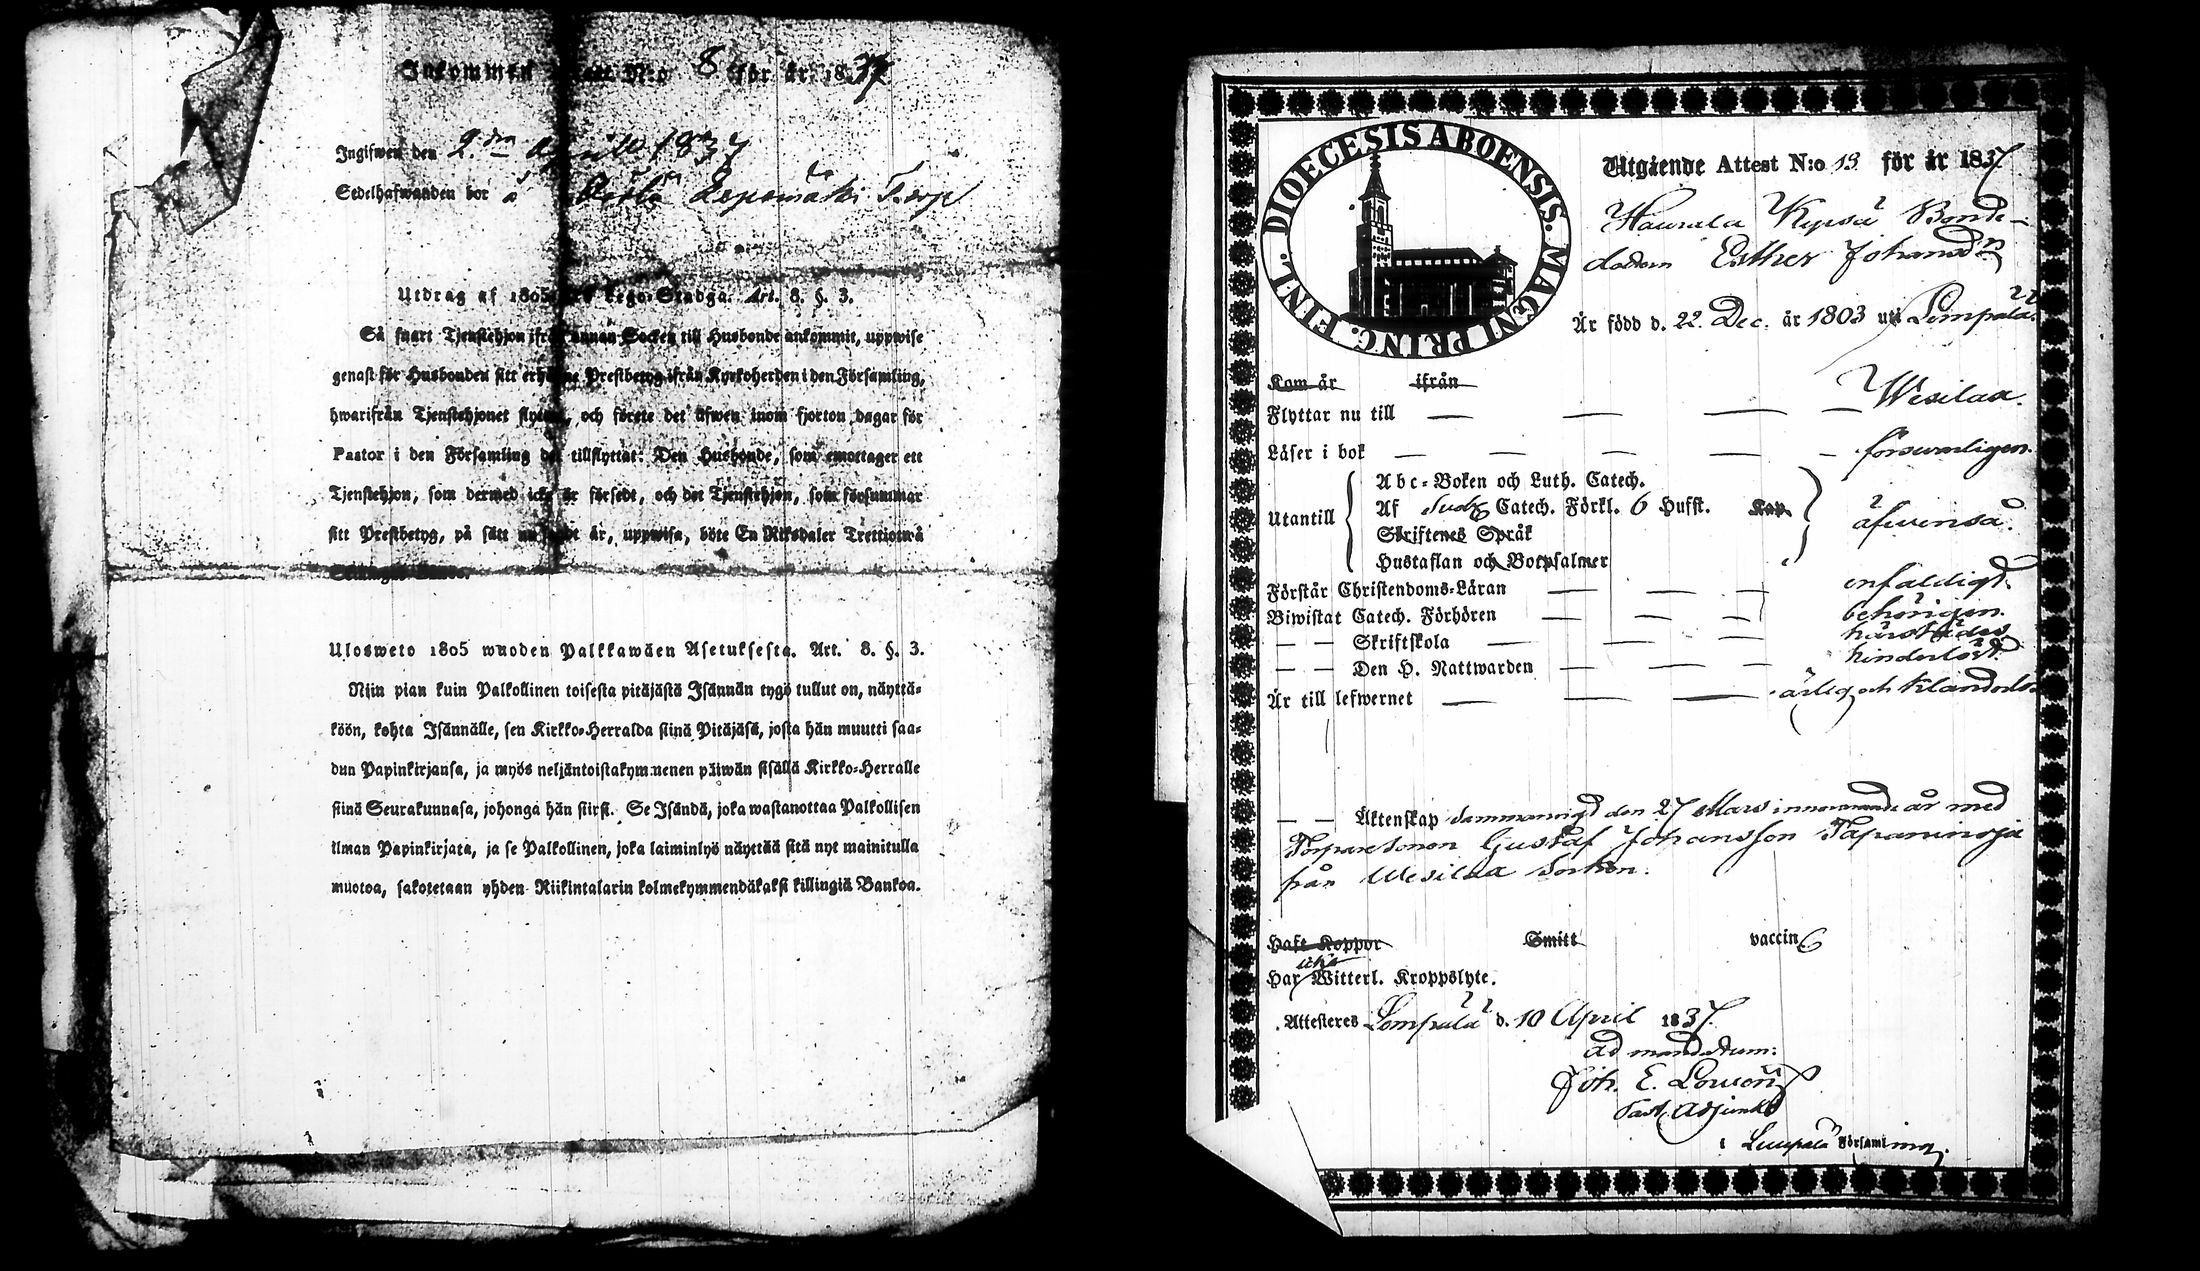 Inkommen Attest N:o 8 för år 1837
Ingifwen den 2:dra Aprill 1837
Sedelhafwanden bor å Torp
Utdrag af 1805 års Lego-Stadga. Art. 8. §. 3.
Så snart Tjenstehjon ifrån annan Socken till Husbonde ankommit, uppwise
genast för Husbonden sitt erhållne Prestbetyg ifrån Kyrkoherden i den Församling,
hwarifrån Tjenstehjonet flyttat, och förete det äfwen inom fjorton dagar för
Pastor i den Församling det tillflyttat: Den Husbonde, som emottager ett
Tjenstehjon, som dermed icke är försedt, och det Tjenstehjon, som försummar
sitt Prestbetyg, på sätt nu sagdt är, uppwisa, böte En Riksdaler Trettiotwå
Skillingar Banco.
Ulosweto 1805 wuoden Palkkawäen Asetuksesta. Art. 8. §. 3.
Niin pian kuin Palkollinen toisesta pitäjästä Isännän tygö tullut on, näyttä-
köön, kohta Isännälle, sen Kirkko-Herralda siinä Pitäjäsä, josta hän muutti saa-
dun Papinkirjansa, ja myös neljäntoistakymmenen päiwän sisällä Kirkko-Herralle
siinä Seurakunnasa, johonga hän siirsi. Se Isändä, joka wastanottaa Palkollisen
ilman Papinkirjata, ja se Palkollinen, joka laiminlyö näyttää sitä nyt mainitulla
muotoa, sakotetaan yhden Riikintalarin kolmekymmendäkaksi killingiä Bankoa.
DIOECESIS ABOENSIS. MAGNI PRINC. FINL.
Utgående Attest N:o 13 för år 1837
Haurala Kyrsä Bonde-
dottern Esther Johansdr
Är född d. 22. Dec. år 1803 uti Lempälä.
Kom år ifrån
Flyttar nu till — — — — Wesilax.
Läser i bok — — — — — försvarligen.
Utantill
Abc-Boken och Luth. Catech.
Af Catech. Förkl. 6 Hufst. Kap.
Skriftenes Språk
Hustaflan och Botpsalmer
äfwenså.
Förstår Christendoms-Läran — — — enfaldigt.
Biwistat Catech. Förhören — — — behörigen.
— — Skriftskola — — — härstädes
— — Den H. Nattwarden — — — hinderlöst.
Är till lefwernet — — — ärlig och klanderlös
— — Äktenskap sammanvigd den 27 Mars innevarande år med
Torparesonen Gustaf Johansson Tapaninoja
från Wesilax Socken.
Haft Koppor Smitt vaccin
Har icke Witterl. Kroppslyte.
Attesteres Lempälä d. 10 April 1837.
ad mandatum:
Joh. E.
Past. Adjunkt
i Lempälä Församling.